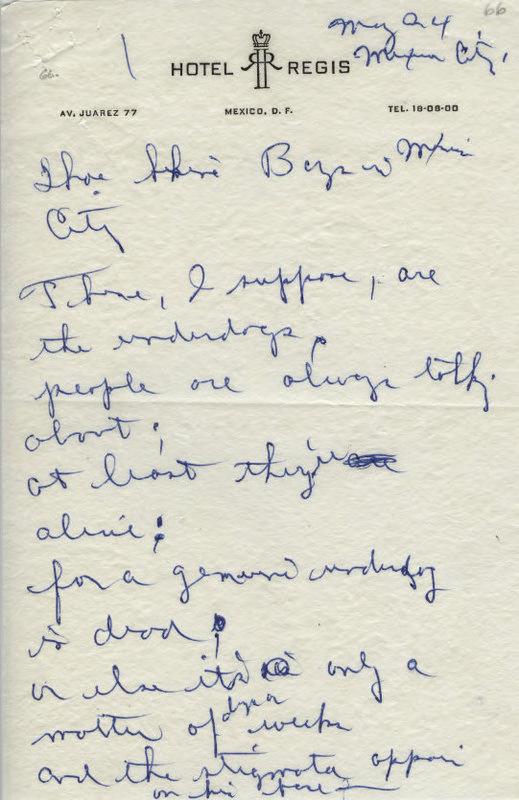 66
May 24
Mexico City,
66.
HOTEL REGIS
AV. JUAREZ 77 MEXICO, D. F. TEL. 18-08-00
Shoe Shine Boys in Mexico
City
These, I suppose, are
the underdogs,
people are always talking
about;
at least they're
alive;
for a genuine underdog
is dead;
or else it's only a
matter of days weeks
and the stigmata appear
on his